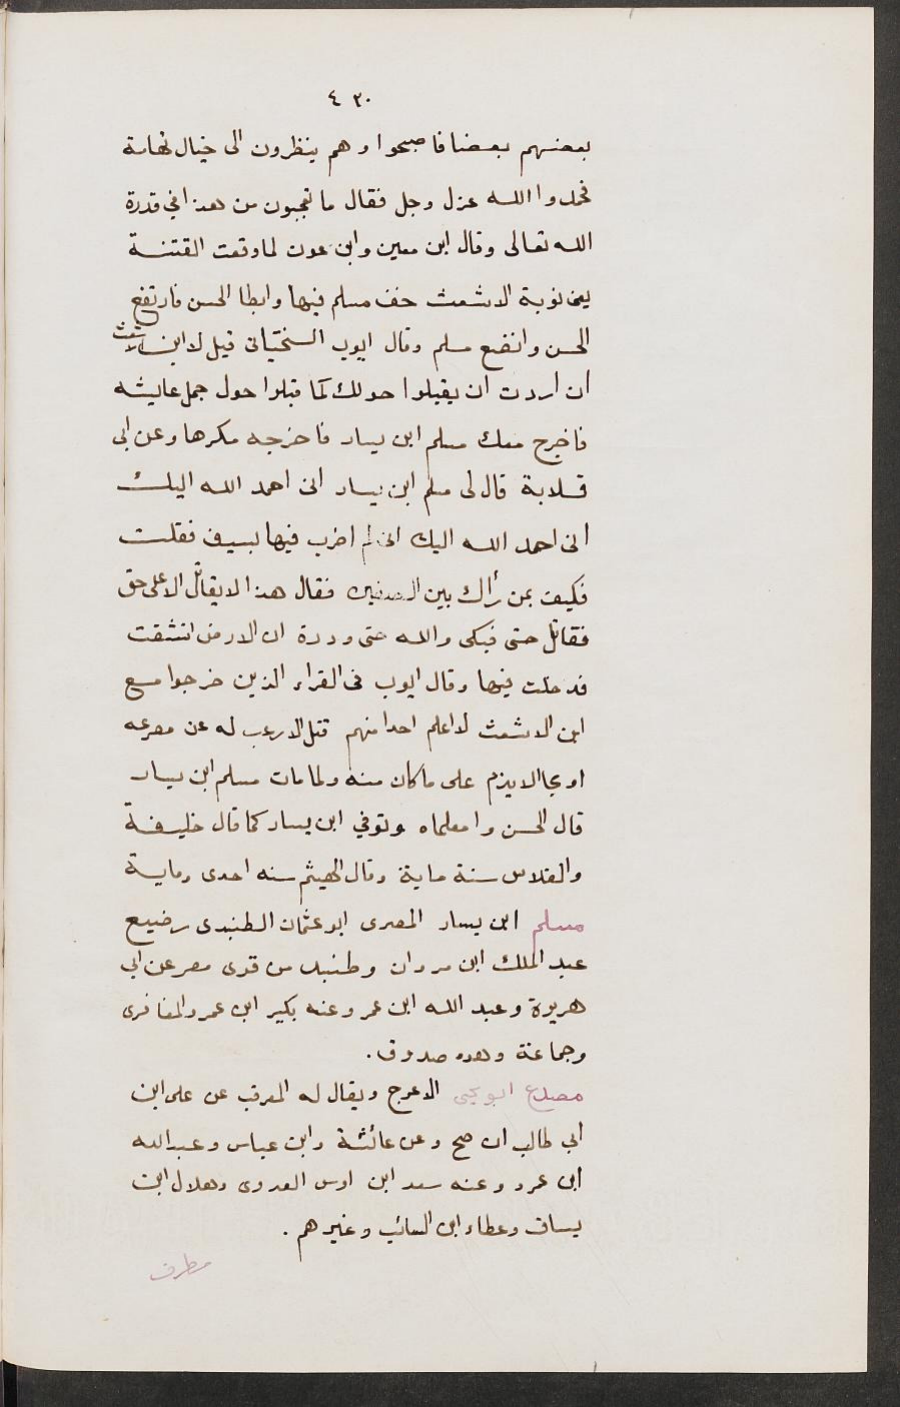 ٤٣٠
بعضهم بعضا فاصبحوا وهم ينظرون الى خيال تهامة
فحمدوا الله عزل وجل فقال ما تعجبون من هذا في قدرة
الله تعالى وقال ابن معين وابن عون لما وقعت الفتنة
يعني نوبة الاشعث خف مسلم فيها وابطا الحسن فارتفع
الحسن واتضع مسلم وقال ايوب السختياني قيل لابن الاشعث
ان أردت ان يقتلوا حولك كما قتلوا حول جمل عايشه
فاخرج معك مسلم ابن يسار فاخرجه مكرها وعن ابي
قلابة قال لى مسلم ابن يسار انى احمد الله اليك
انى احمد الله اليك انى لم اضرب فيها بسيف فقلت
فكيف بمن رأك بين الصفين فقال هذا لا يقاتل الا على حق
فقاتل حتى فبكى والله حتى وددة ان الارض انشقت
فدخلت فيها وقال ايوب فى القراء الذين خرجوا مع
ابن الاشعث لا اعلم احدا منهم قتل الا رعب له عن مصرعه
او نجا الا يزم على ما كان منه ولما مات مسلم ابن يسار
قال الحسن وا معلماه وتوفي ابن يسار كما قال خليفة
والفلاس سنة ماية وقال الهيثم سنه احدى وماية
مسلم ابن يسار المصرى ابو عثمان الطنبدى رضيع
عبد الملك ابن مروان وطنبد من قرى مصر عن ابي
هريرة وعبد الله ابن عمر وعنه بكير ابن عمرو المعافرى
وجماعة وهوه صدوق.
مصدع ابو يحيى الاعرج ويقال له المعرقب عن على ابن
أبي طالب ان صح وعن عائشة وابن عباس وعبد الله
ابن عمرو وعنه سعد ابن اوس العدوى وهلال ابن
يساف وعطاء ابن السائب وغيرهم.
مطرف